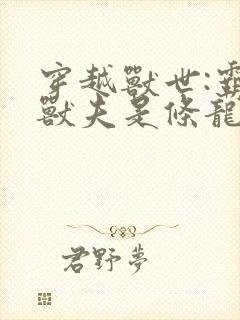 穿越獸世:霸
獸夫是條龍
君野夢